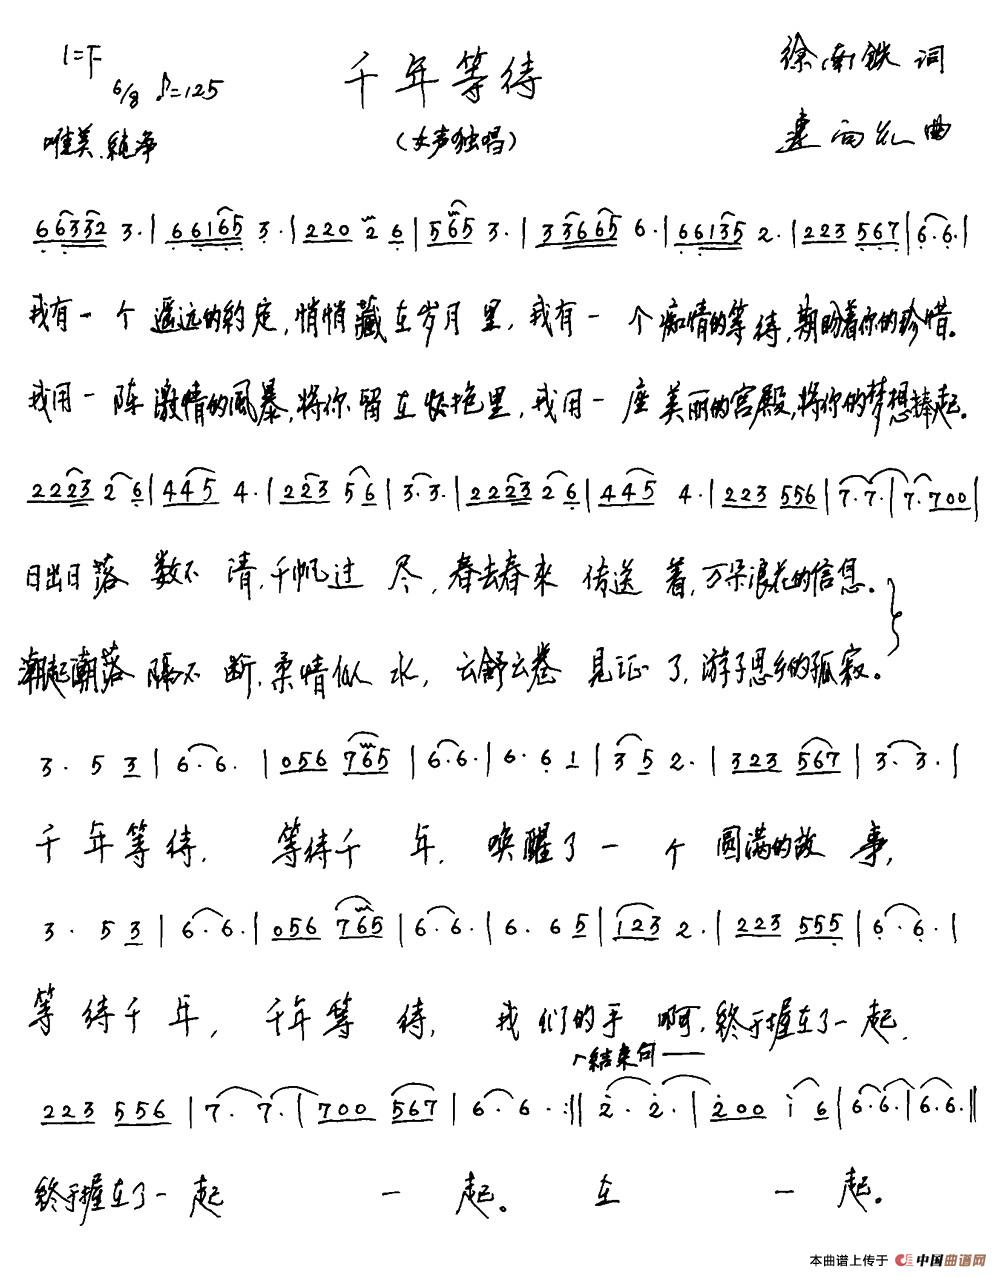 1=F
6/8 ♪=125
千年等待
徐南铁 词
唯美.纯净
(女声独唱)
向红 曲
66332 3·|66165 3·|220 2 6|565 3·|336665 6·|66135 2·|223 567|6·6·|
我有一个遥远的约定,悄悄藏在岁月里,我有一个痴情的等待,期盼着你的珍惜。
我用一阵激情的风暴,将你留在怀抱里,我用一座美丽的宫殿,将你的梦想捧起。
2223 26|445 4·|223 56|3·3·|2223 26|445 4·|223 556|7·7·|7·700|
日出日落数不清,千帆过尽,春去春来传送着,万朵浪花的信息。
潮起潮落隔不断,柔情似水,云舒云卷见证了,游子思乡的孤寂。
3· 5 3|6·6·|056 765|6·6·|6·6 1|3 5 2·|323 567|3·3·|
千年等待,等待千年,唤醒了一个圆满的故事,
3· 5 3|6·6·|056 765|6·6·|6·6 5|123 2·|223 555|6·6·|
等待千年,千年等待,我们的手啊,终于握在了一起,
结束句——
223 556|7·7·|700 567|6·6·:‖2·2·|200 i 6|6·6·|6·6·‖
终于握在了一起 一 起。在 一 起。
本曲谱上传于 中国曲谱网